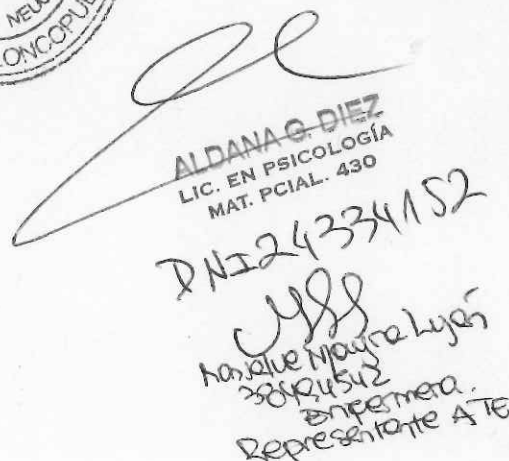 NEUQ
ONCOPU
ALDANA G. DIEZ
LIC. EN PSICOLOGÍA
MAT. PCIAL. 430
DNI 24334152
Mayra Luján
Enfermera.
Representante ATE